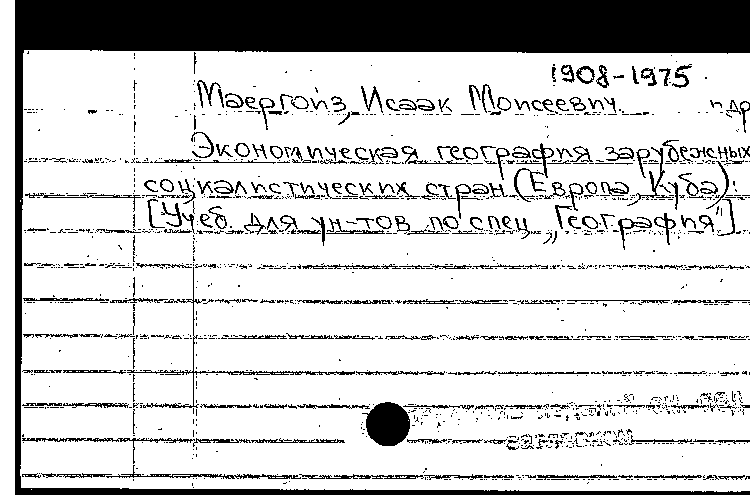 1908-1975
Маергойз, Исаак Моисеевич.
Экономическая география зарубежных
социалистических стран (Европа, Куба):
[Учеб. для ун-тов по спец „География"]